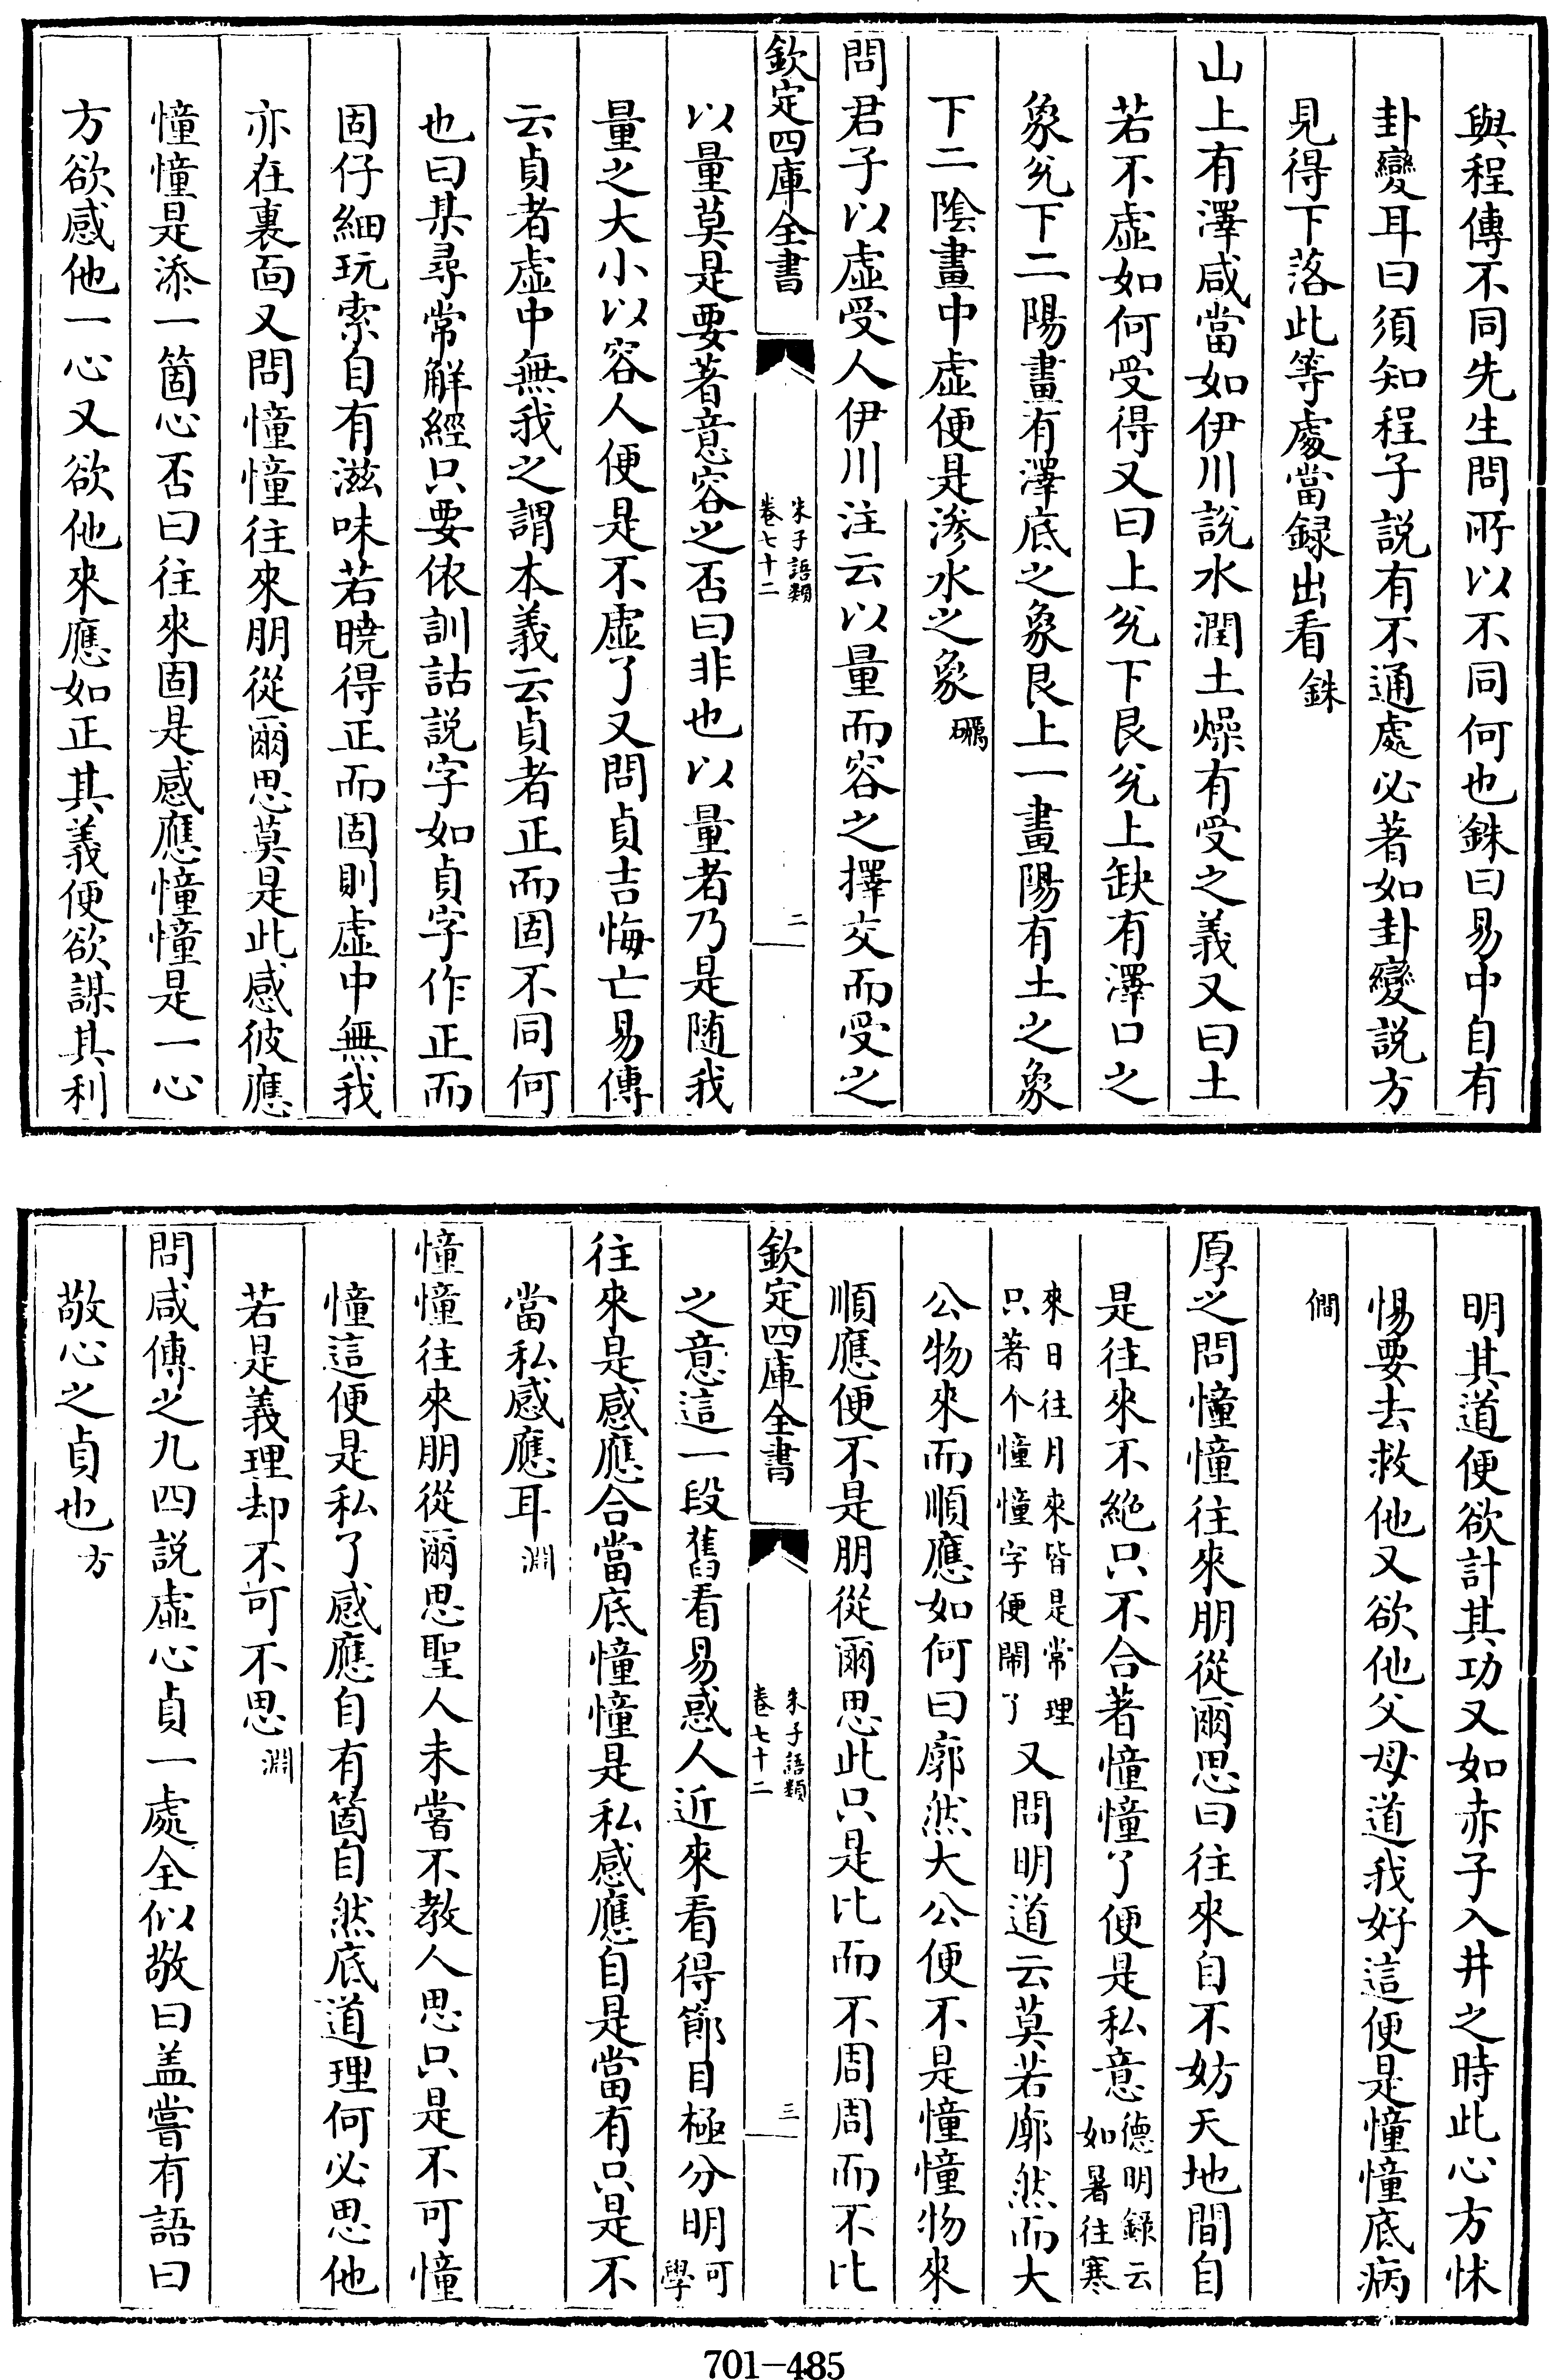 與程傳不同先生問所以不同何也銖曰易中自有
卦變耳曰須知程子説有不通處必著如卦變説方
見得下落此等處當録出看銖
山上有澤咸當如伊川説水潤土燥有受之義又曰土
若不虚如何受得又曰上兊下艮兊上缺有澤口之
象兊下二陽畫有澤底之象艮上一畫陽有土之象
下二陰畫中虚便是滲水之象礪
問君子以虚受人伊川注云以量而容之擇交而受之
欽定四庫全書
朱子語類
卷七十二
二
以量莫是要著意容之否曰非也以量者乃是随我
量之大小以容人便是不虚了又問貞吉悔亡易傳
云貞者虚中無我之謂本義云貞者正而固不同何
也曰某尋常解經只要依訓詁説字如貞字作正而
固仔細玩索自有滋味若曉得正而固則虚中無我
亦在裏面又問憧憧往來朋從爾思莫是此感彼應
憧憧是添一箇心否曰往來固是感應憧憧是一心
方欲感他一心又欲他來應如正其義便欲謀其利
明其道便欲計其功又如赤子入井之時此心方怵
惕要去救他又欲他父母道我好這便是憧憧底病
僩
厚之問憧憧往來朋從爾思曰往來自不妨天地間自
是往來不絶只不合著憧憧了便是私意德明錄云
如暑往寒
來日往月來皆是常理
只著个憧憧字便鬧了又問明道云莫若廓然而大
公物來而順應如何曰廓然大公便不是憧憧物來
順應便不是朋從爾思此只是比而不周周而不比
欽定四庫全書
朱子語類
卷七十二
三
之意這一段舊看易惑人近來看得節目極分明可
學
往來是感應合當底憧憧是私感應自是當有只是不
當私感應耳淵
憧憧往來朋從爾思聖人未嘗不教人思只是不可憧
憧這便是私了感應自有箇自然底道理何必思他
若是義理却不可不思淵
問咸傳之九四説虚心貞一處全似敬曰盖嘗有語曰
敬心之貞也方
701-485